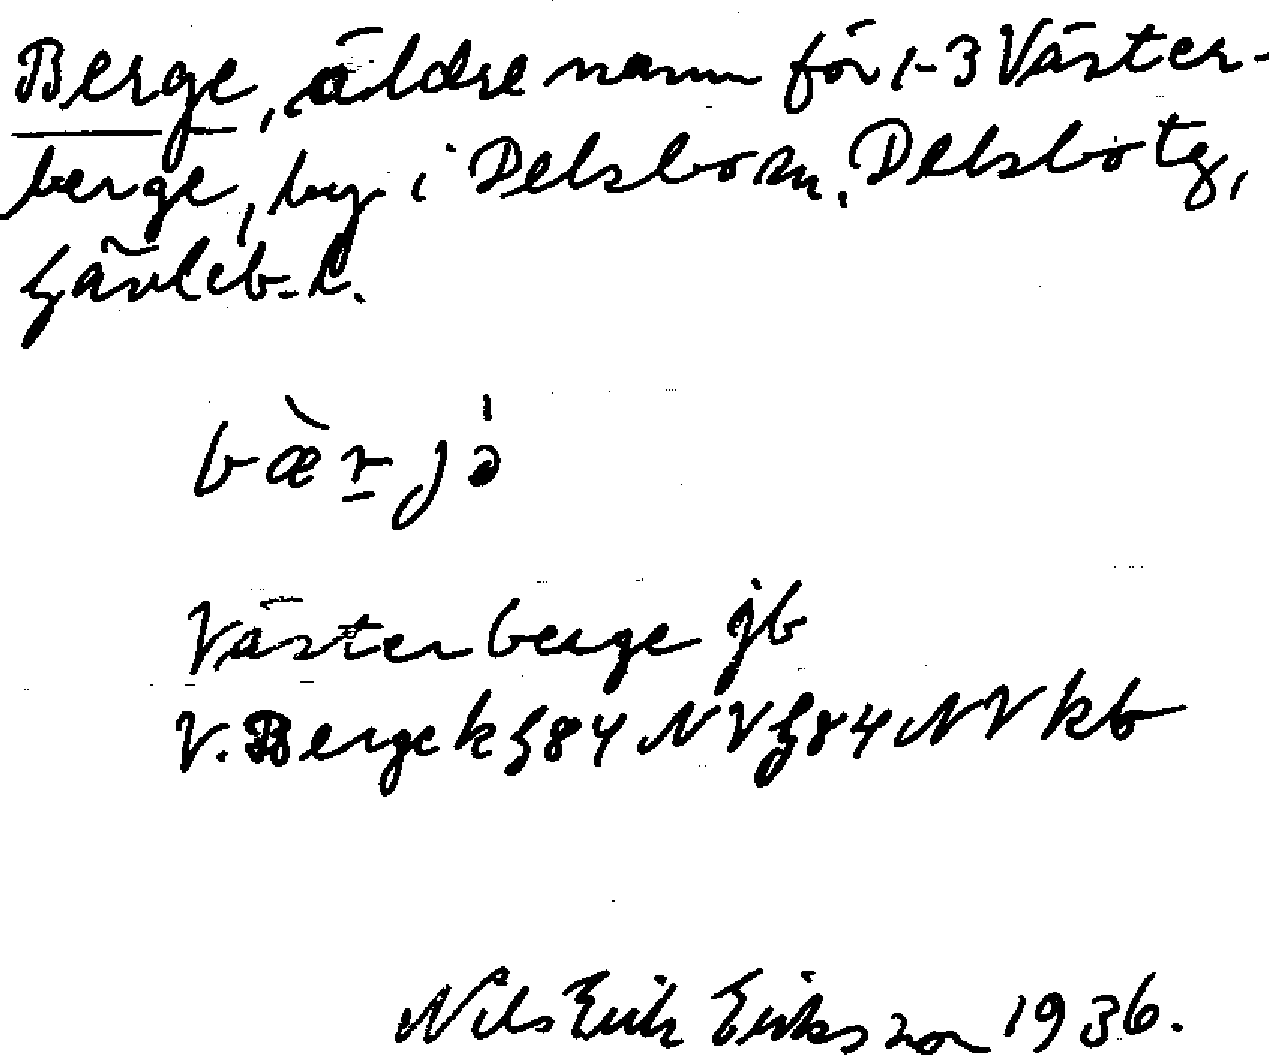 Berge, äldre namn för 1-3 Väster-
berge, by i Delsbo sn. Delsbo tg,
Gävleb. l.
bæ̀r̲jə̍
Västerberge jb
V. Berge k G84 NV G84 NV kb
Nils Erik Eriksson 1936.